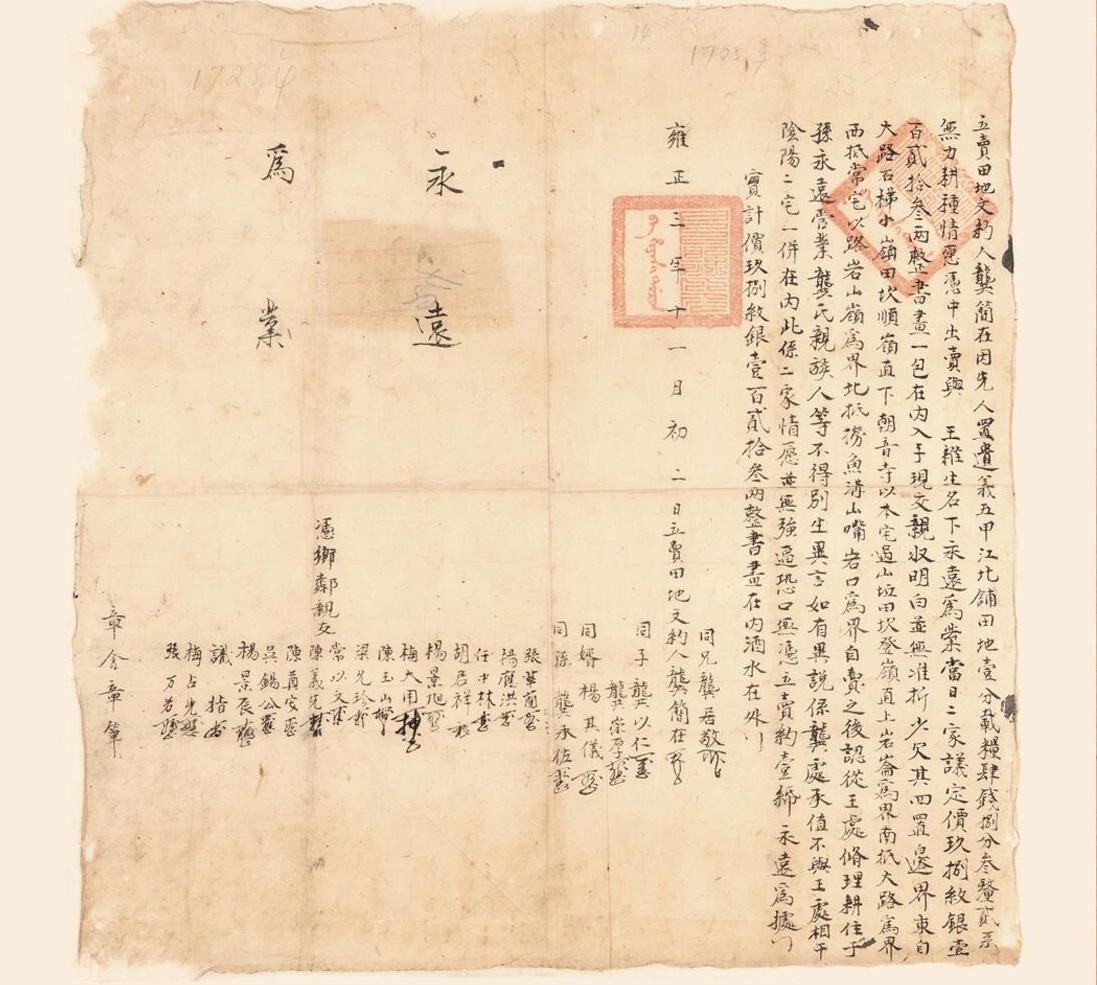 立賣田地文約人龔簡在因先人置遺義五甲江北舖田地壹分載糧肆錢捌分叁釐貳系
無力耕種情愿憑中出賣與 王維生名下永遠為業當日二家議定價玖捌紋銀壹
百貳拾叁两整書畫一包在內入手現交親收明白並無准折少欠其四置邊界東自
大路石梯小嶺田坎順嶺直下朝音寺以本宅過山垭田坎登嶺直上岩崙為界南抵大路為界
西抵常宅以路岩山嶺為界北抵撈魚溝山嘴岩口為界自賣之後認從王處修理耕住子
孫永遠管業龔氏親族人等不得別生異言如有異説係龔處承值不與王處相干
陰陽二宅一併在內此係二家情愿並無強逼恐口無憑立賣約壹紙永遠為據
實計價玖捌紋銀壹百貳拾叁两整書畫在內酒水在外
同兄龔君敬
雍正三年十一月初二日立賣田地文約人龔簡在
同子龔以仁
龔崇厚
同婿楊其儀
同孫龔承佐
張
楊應洪
任中林
胡君祥
楊景旭
梅大用
陳玉山
梁允珍
常以文
陳義先
憑鄉鄰親友
陳
吳錫公
楊景辰
梅占先
張万
章
永遠
為業
1725
14
1725